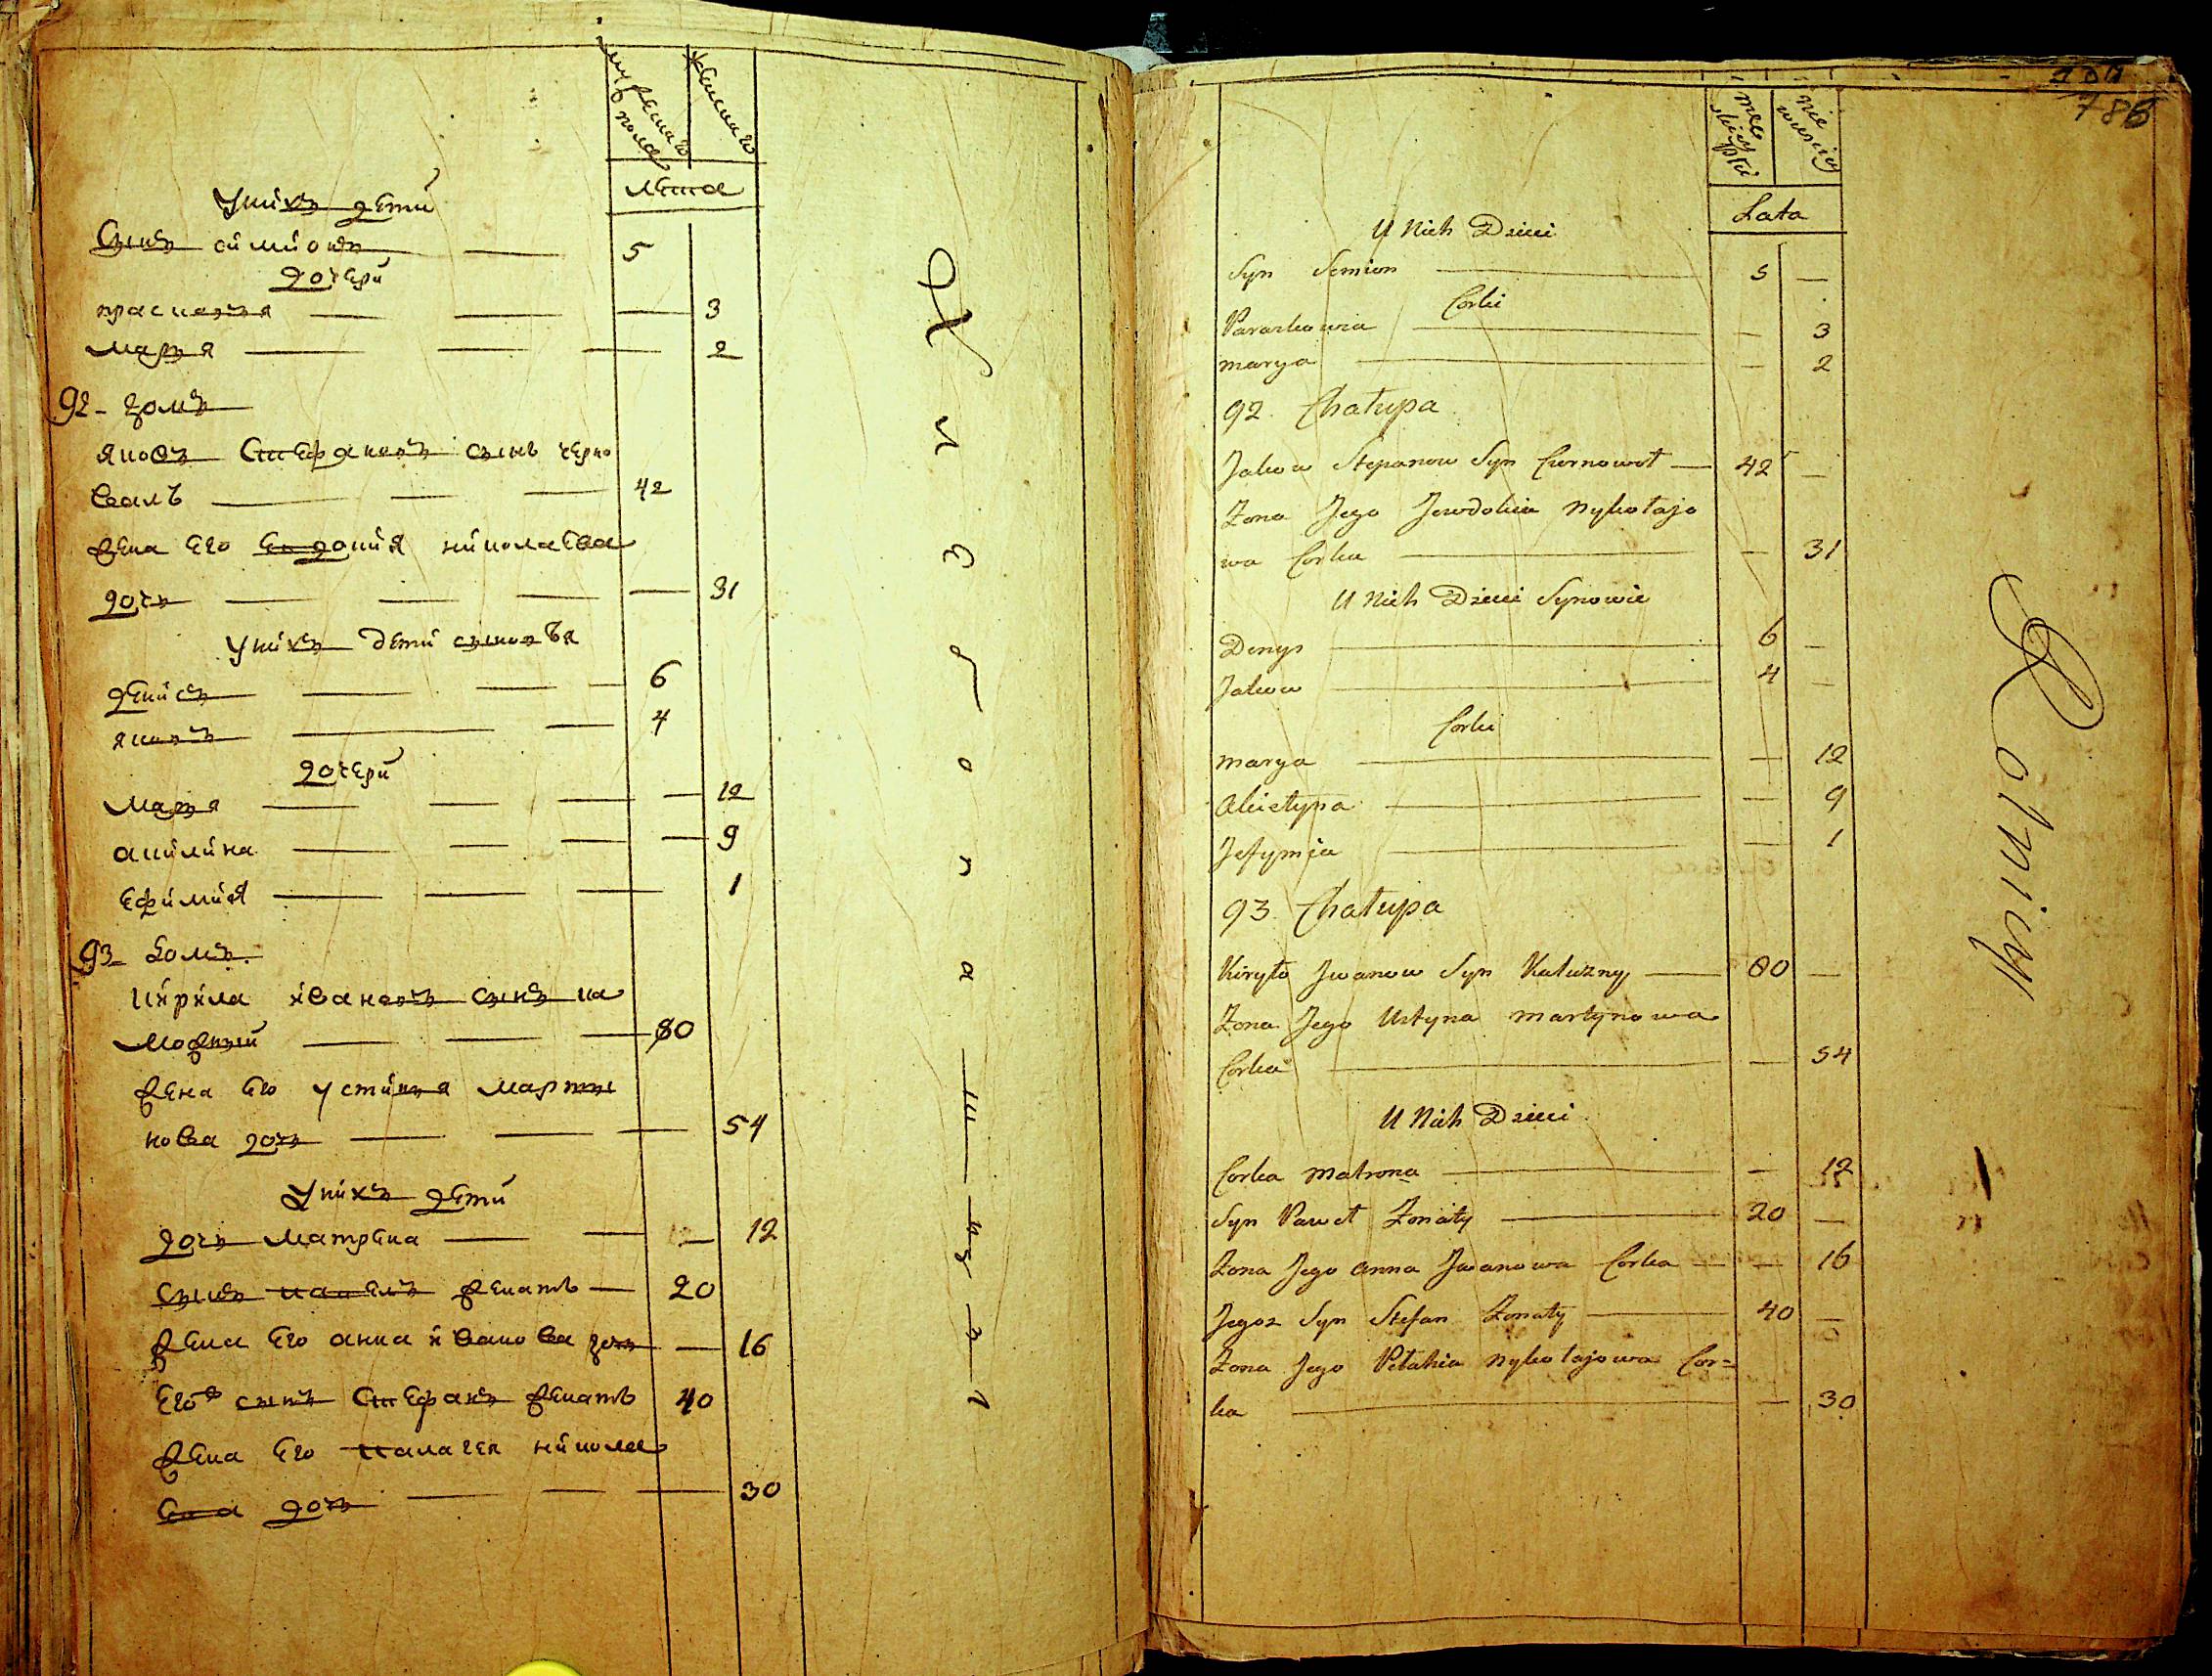 мужеска
пола
женска
лета
У нихъ дети
Сынъ симионъ — 5
дочери
прасковя — 3
маря — 2
92 - домъ
яковъ Стефановъ сынъ черно
валъ — 42
жена его Евдокия николаева
дочь — 31
У нихъ дети сыновья
денисъ — 6
яковъ — 4
дочери
маря — 12
акилина — 9
ефимия — 1
93 - домъ
кирила иванов сынъ ка
люжный — 80
жена его устиня марты
нова дочь — 54
У нихъ дети
дочь матрена — 12
сынъ павелъ женатъ — 20
жена его анна иванова дочь — 16
егожъ сынъ Стефанъ женатъ 40
жена его палагея никола
ева дочь — 30
786
męs
kiey
płci
nie
wieściey
Lata
U Nich Dzieci
Syn Semion — 5 —
Corki
Paraskowia — 3
marya — 2
92. Chałupa
Jakow Stepanow Syn Czernowoł — 42 —
Zona Jego Jewdokia Mykołajo
wa Corka — 31
U Nich Dzieci Synowie
Denys — 6 —
Jakow — 4 —
Corki
marya — 12
Akietyna — 9
Jefymia — 1
93. Chałupa
Kiryło Jwanow Syn Kałuzny — 80 —
Zona Jego Ustyna martynowa
Corka — 54
U Nich Dzieci
Corka matrona — 12
Syn Paweł Zonaty — 20 —
Zona Jego Anna Jwanowa Corka — 16
Jegoz Syn Stefan Zonaty — 40 —
Zona Jego Pełahia Mykołajowa Cor=
ka — 30
Rolnicy